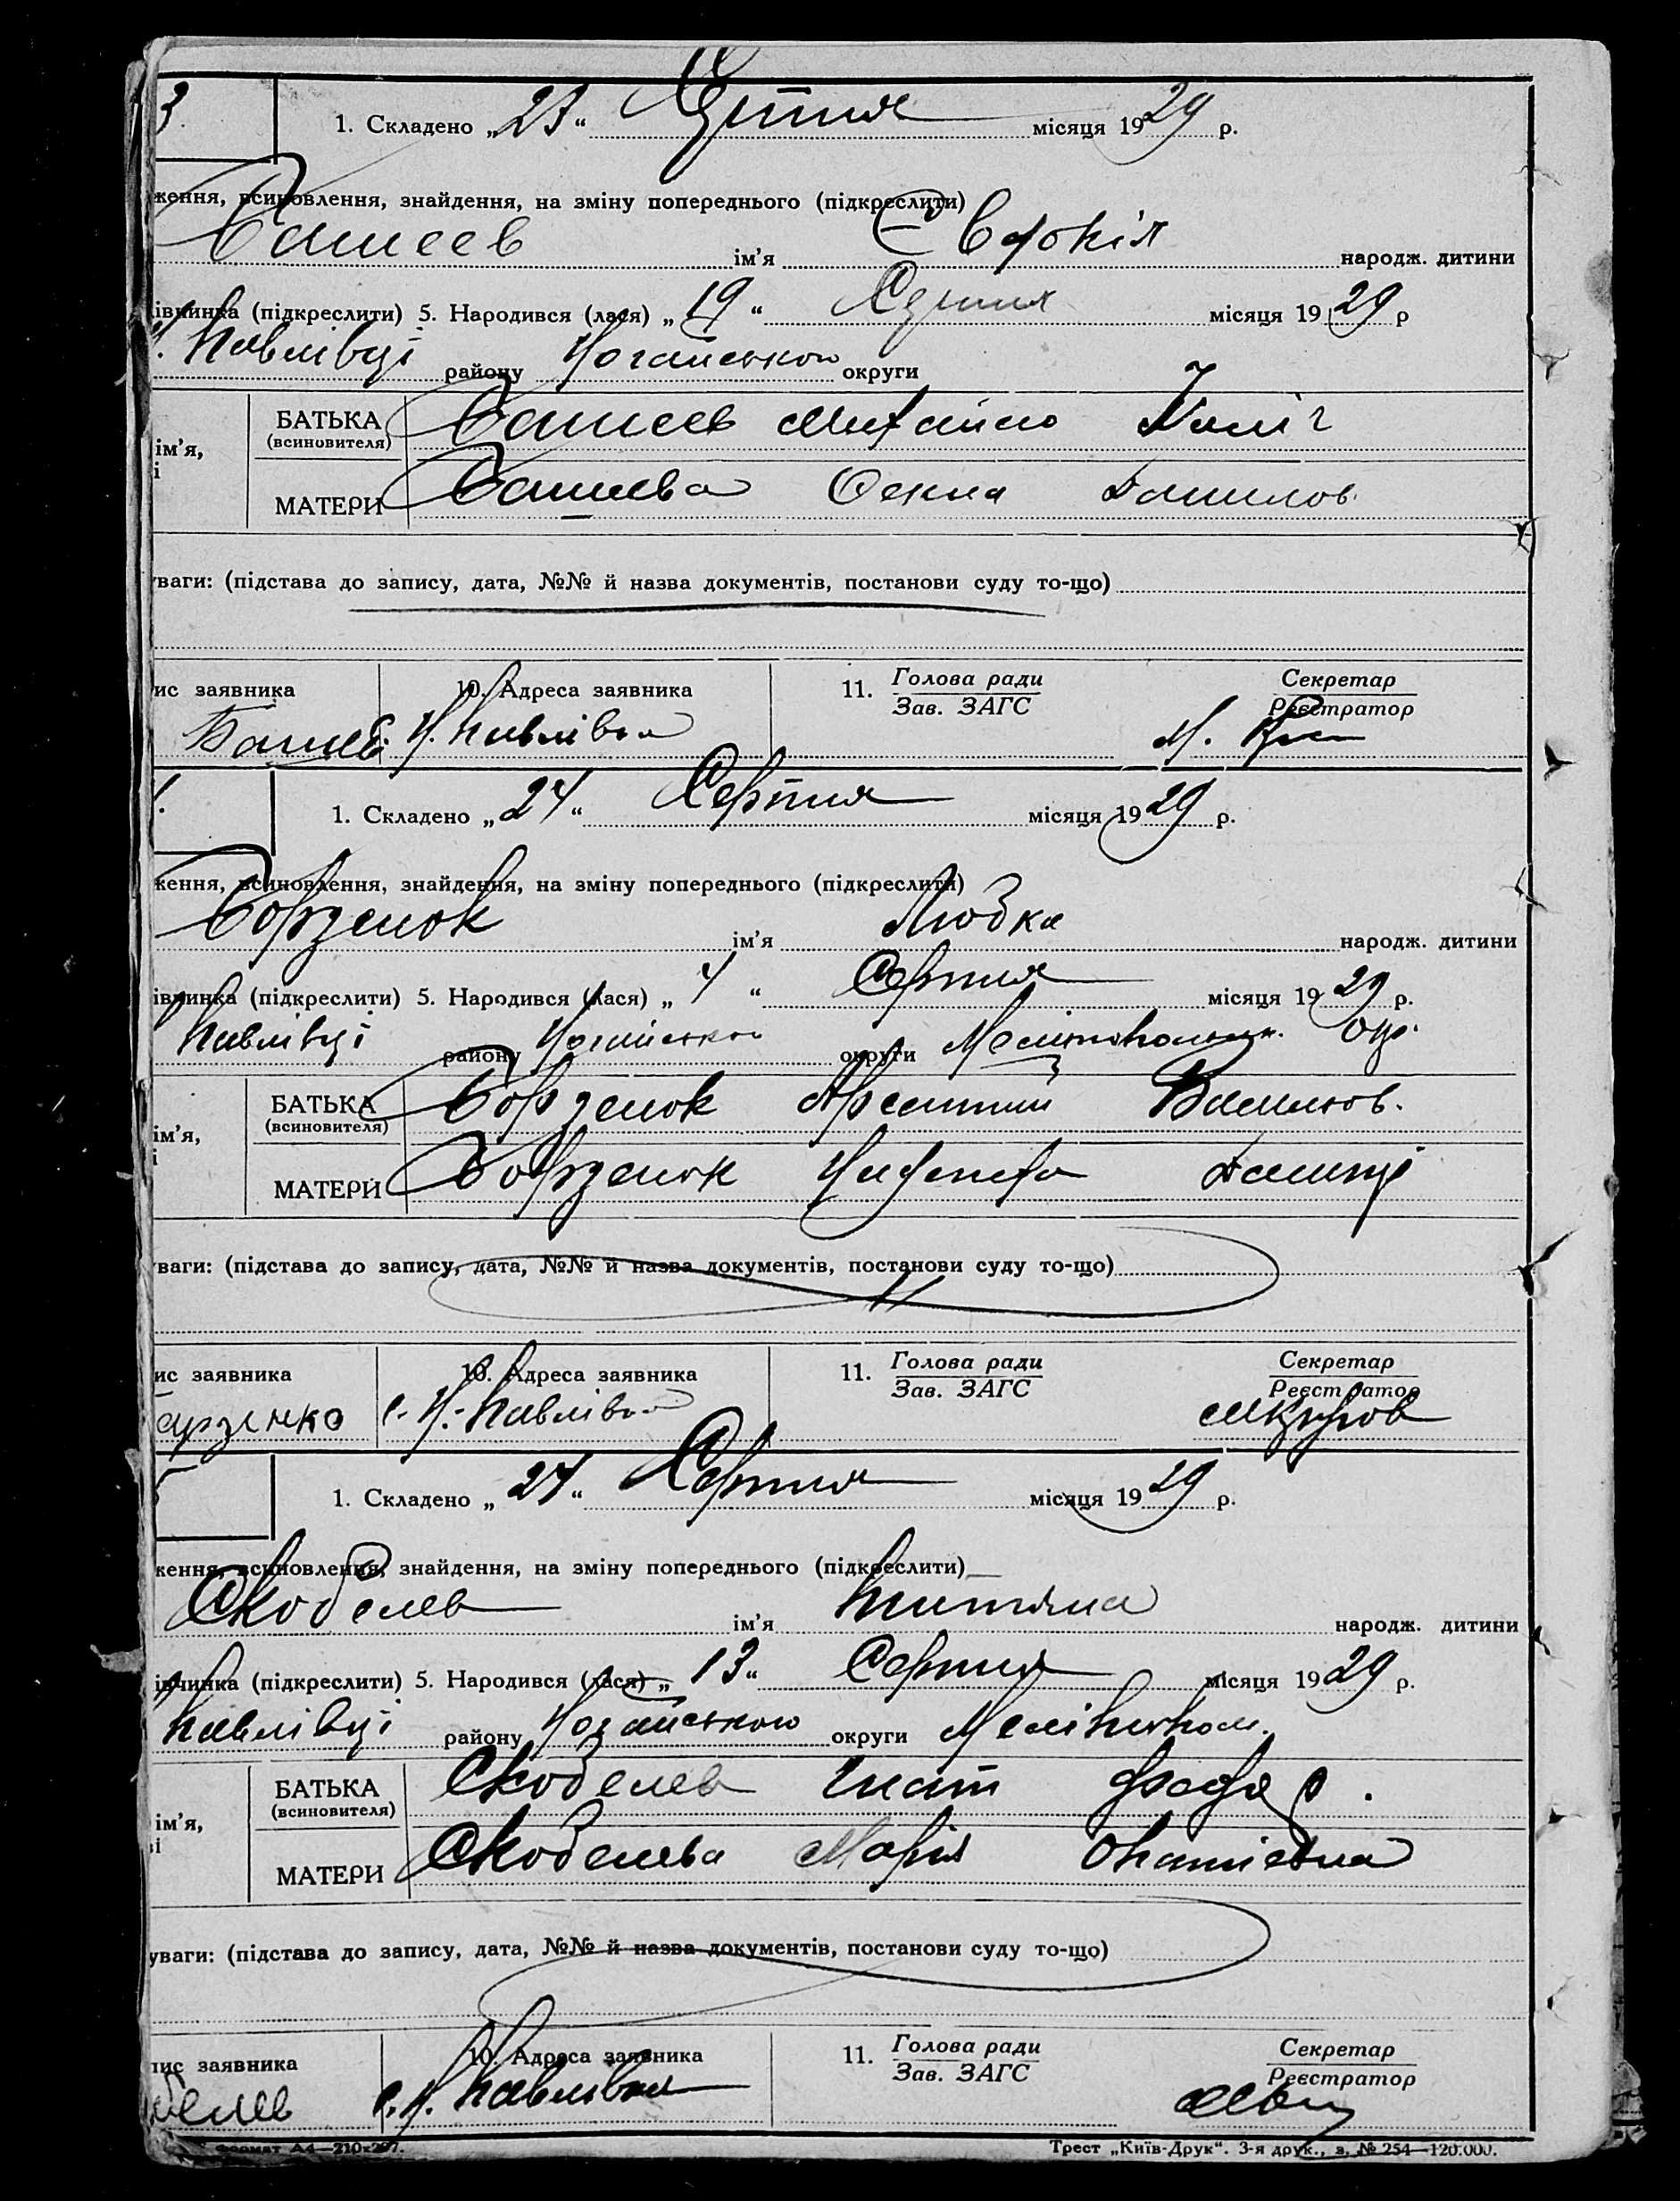 3.
1. Складено „23“ Серпня місяця 1929 р.
ження, всиновлення, знайдення, на зміну попереднього (підкреслити)
Башеев ім’я Евфокія народж. дитини
івчинка (підкреслити) 5. Народився (лася) „19“ Серпня місяця 1929 р
Н. Павлівці району Ногайського округи
ім’я, БАТЬКА (всиновителя) Башеев Михайло
і МАТЕРИ Башева Данилов.
уваги: (підстава до запису, дата, №№ й назва документів, постанови суду то-що)
ис заявника 10. Адреса заявника 11. Голова ради Секретар
Зав. ЗАГС Реєстратор
Башев Н. Павлівка М.
1. Складено „24“ Серпня місяця 1929 р.
ження, всиновлення, знайдення, на зміну попереднього (підкреслити)
Борзенок ім’я Любка народж. дитини
івчинка (підкреслити) 5. Народився (лася) „4“ Серпня місяця 1929 р.
Павлівці району Ногайського округи Мелітопольск. Окр.
ім’я, БАТЬКА (всиновителя) Борзенок Арсентий Васильов.
і МАТЕРИ Борзенок
уваги: (підстава до запису, дата, №№ й назва документів, постанови суду то-що)
ис заявника 10. Адреса заявника 11. Голова ради Секретар
Зав. ЗАГС Реєстратор
арзенко с. Н. Павлівка
5
1. Складено „24“ Серпня місяця 1929 р.
ження, всиновлення, знайдення, на зміну попереднього (підкреслити)
Скобелев ім’я народж. дитини
івчинка (підкреслити) 5. Народився (лася) „13“ Серпня місяця 1929 р.
Павлівці району Ногайського округи Мелітопол.
ім’я, БАТЬКА (всиновителя) Скобелев Гнат Федор.
і МАТЕРИ Скобелева Марія
уваги: (підстава до запису, дата, №№ й назва документів, постанови суду то-що)
пис заявника 10. Адреса заявника 11. Голова ради Секретар
Зав. ЗАГС Реєстратор
обелев с. Н. Павлівка
Формат А4—210х297. Трест „Київ-Друк“. 3-я друк., з. № 254—120.000.